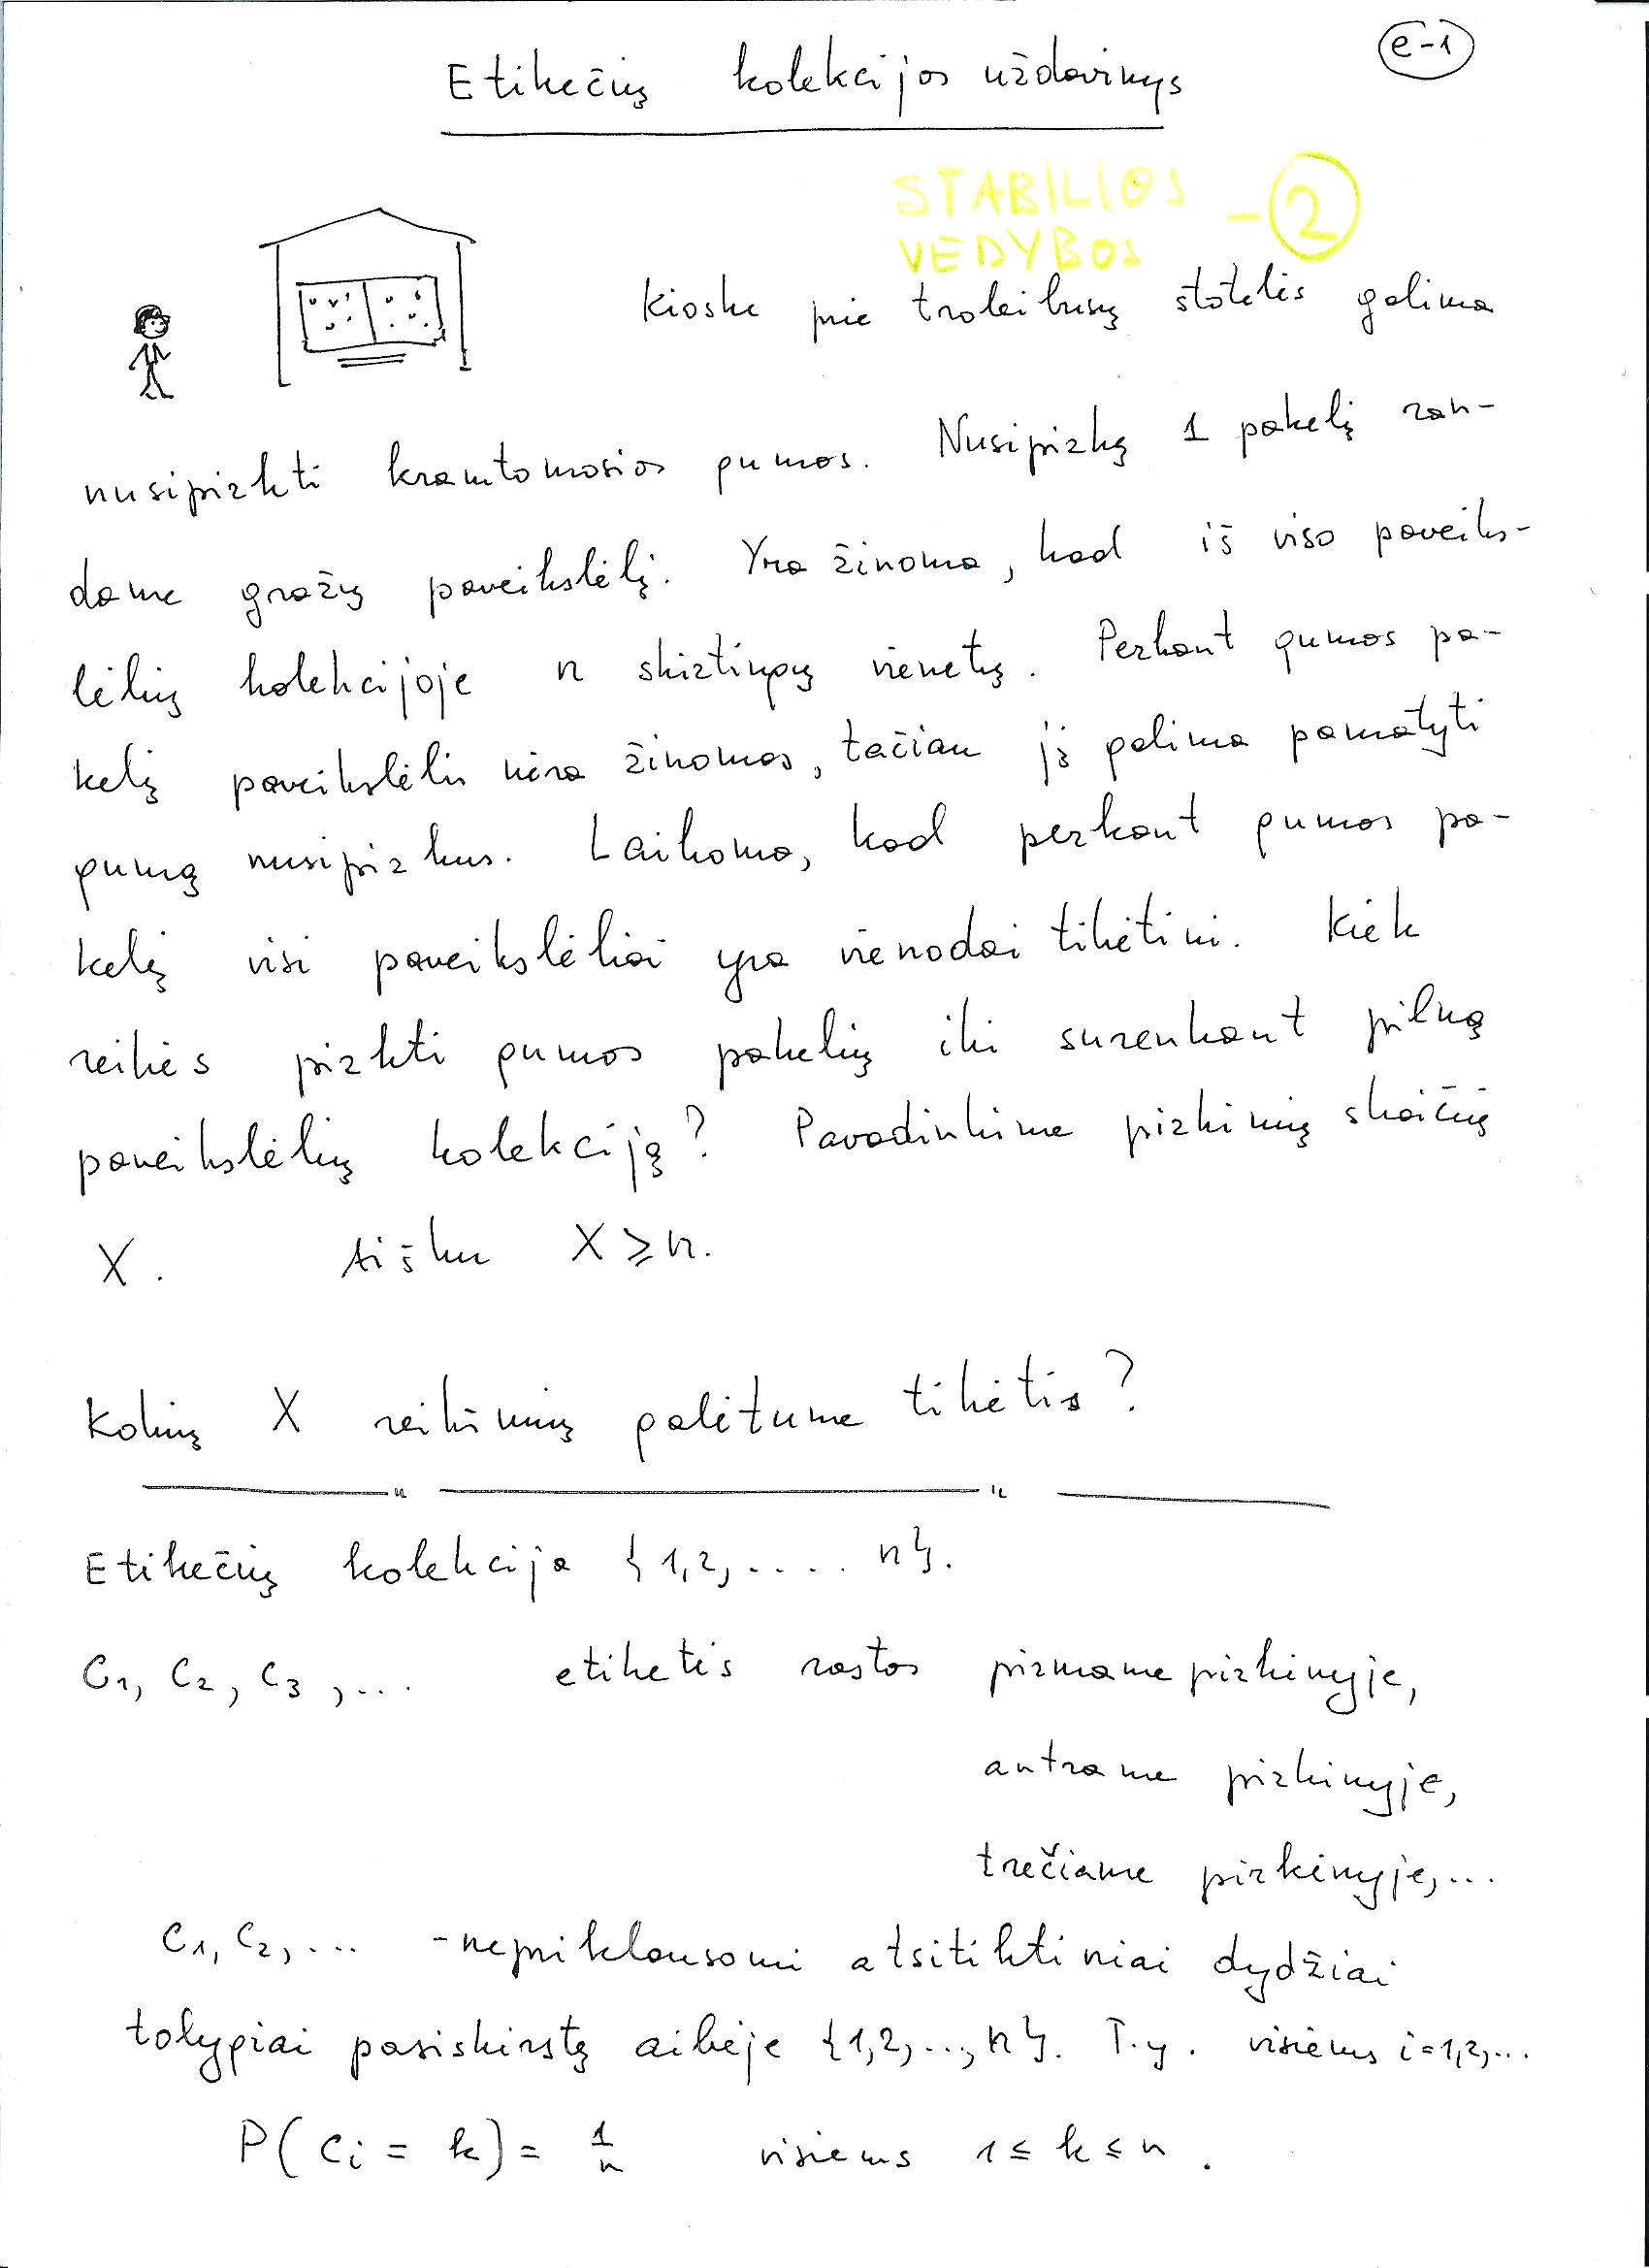 e-1
Etikečių kolekcijos uždavinys
STABILIOS - 2
VEDYBOS
Kioske prie troleibusų stotelės galima
nusipirkti kramtomosios gumos. Nusipirkę 1 pakelį ran-
dame gražų paveikslėlį. Yra žinoma, kad iš viso paveiks-
lėlių kolekcijoje n skirtingų vienetų. Perkant gumos pa-
kelį paveikslėlis nėra žinomas, tačiau jį galima pamatyti
gumą nusipirkus. Laikoma, kad perkant gumos pa-
kelį visi paveikslėliai yra vienodai tikėtini. Kiek
reikės pirkti gumos pakelių iki surenkant pilną
paveikslėlių kolekciją? Pavadinkime pirkinių skaičių
X. Aišku X ≥ n.
Kokių X reikšmių galėtume tikėtis?
Etikečių kolekcija {1,2,.... n}.
C₁, C₂, C₃,... etiketės rastos pirmame pirkinyje,
antrame pirkinyje,
trečiame pirkinyje,...
C₁, C₂,... - nepriklausomi atsitiktiniai dydžiai
tolygiai pasiskirstę aibėje {1,2,..., n}. T.y. visiems i=1,2,...
P(Ci = k) = 1/n visiems 1 ≤ k ≤ n.